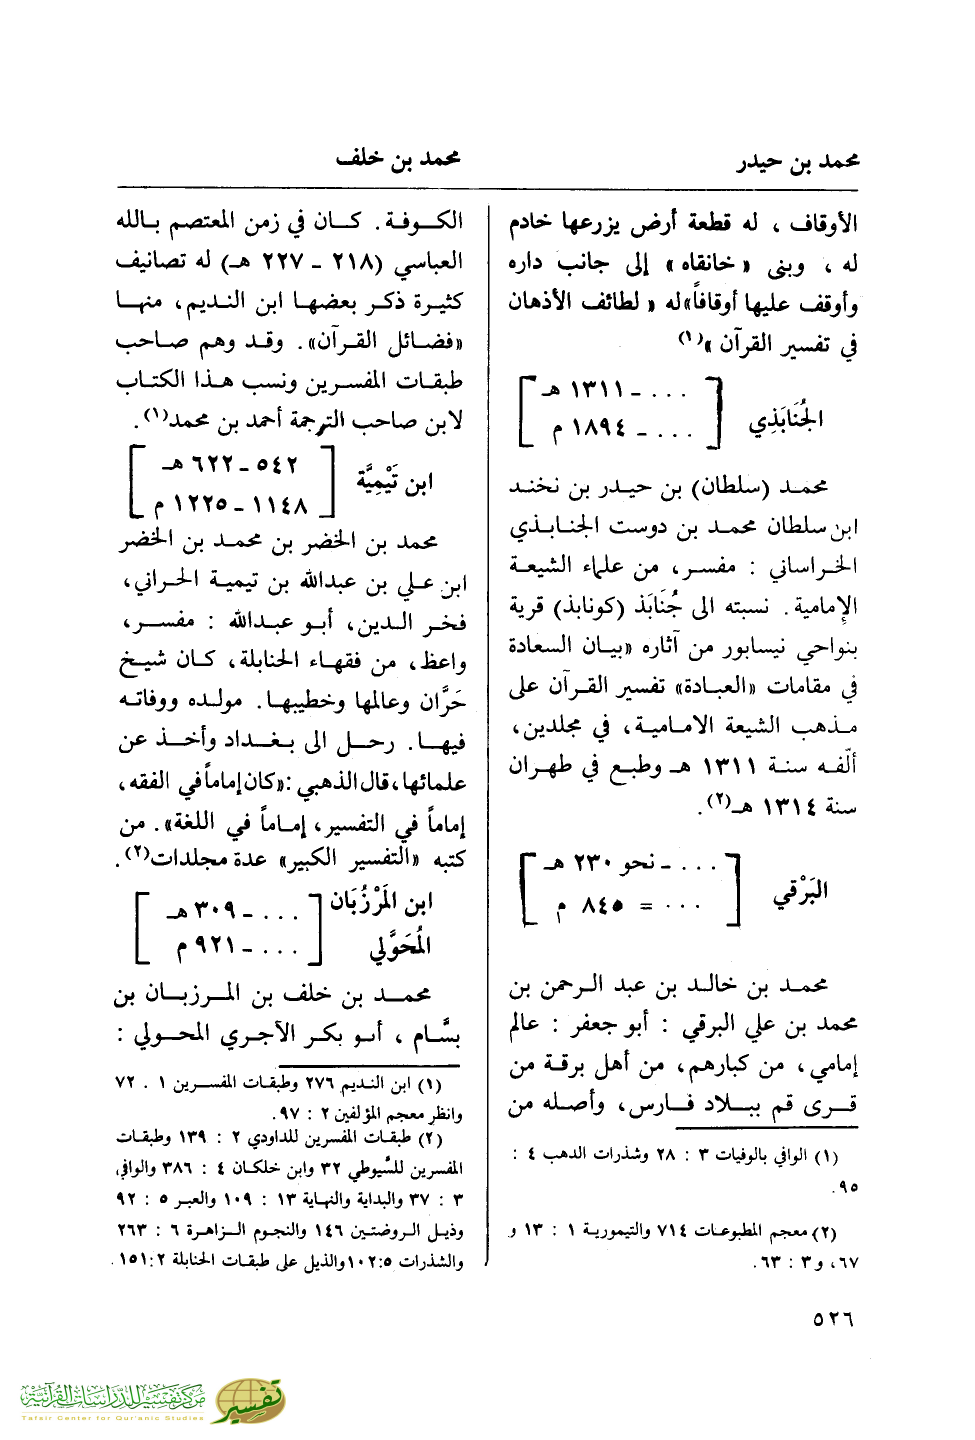 محمد بن حيدر
محمد بن خلف
الأوقاف ، له قطعة أرض يزرعها خادم
له ، وبنى « خانقاه » إلى جانب داره
وأوقف عليها أوقافاً» له « لطائف الأذهان
في تفسير القرآن »(١)
الجُنَابَذِي
[ ... ـ ١٣١١ هـ
... ـ ١٨٩٤ م ]
محمد (سلطان) بن حيدر بن نخند
ابن سلطان محمد بن دوست الجنابذي
الخراساني : مفسر، من علماء الشيعة
الإمامية. نسبته الى جُنَابَذ (كونابذ) قرية
بنواحي نيسابور من آثاره «بيان السعادة
في مقامات «العبادة» تفسير القرآن على
مذهب الشيعة الامامية، في مجلدين،
ألّفه سنة ١٣١١ هـ وطبع في طهران
سنة ١٣١٤ هـ(٢).
البَرْقي
[ ... ـ نحو ٢٣٠ هـ
... = ٨٤٥ م ]
محمد بن خالد بن عبد الرحمن بن
محمد بن علي البرقي : أبو جعفر : عالم
إمامي، من كبارهم، من أهل برقة من
قرى قم ببلاد فارس، وأصله من
(١) الوافي بالوفيات ٣ : ٢٨ وشذرات الدهب ٤ :
٩٥.
(٢) معجم المطبوعات ٧١٤ والتيمورية ١ : ١٣ و
٦٧، و٣ : ٦٣.
الكوفة. كان في زمن المعتصم بالله
العباسي (٢١٨ ـ ٢٢٧ هـ) له تصانيف
كثيرة ذكر بعضها ابن النديم، منها
«فضائل القرآن». وقد وهم صاحب
طبقات المفسرين ونسب هذا الكتاب
لابن صاحب الترجمة أحمد بن محمد(١).
ابن تَيْمِيَّة
[ ٥٤٢ ـ ٦٢٢ هـ
١١٤٨ ـ ١٢٢٥ م ]
محمد بن الخضر بن محمد بن الخضر
ابن علي بن عبدالله بن تيمية الحراني،
فخر الدين، أبو عبدالله : مفسر،
واعظ، من فقهاء الحنابلة، كان شيخ
حَرَّان وعالمها وخطيبها. مولده ووفاته
فيها. رحل الى بغداد وأخذ عن
علمائها، قال الذهبي :«كان إماماً في الفقه،
إماماً في التفسير، إماماً في اللغة». من
كتبه «التفسير الكبير» عدة مجلدات(٢).
ابن المَرْزُبَان
المُحَوَّلي
[ ... ـ ٣٠٩ هـ
... ـ ٩٢١ م ]
محمد بن خلف بن المرزبان بن
بسَّام ، أبو بكر الآجري المحولي :
(١) ابن النديم ٢٧٦ وطبقات المفسرين ١ . ٧٢
وانظر معجم المؤلفين ٢ : ٩٧.
(٢) طبقات المفسرين للداودي ٢ : ١٣٩ وطبقات
المفسرين للسُّيوطي ٣٢ وابن خلكان ٤ : ٣٨٦ والوافي
٣ : ٣٧ والبداية والنهاية ١٣ : ١٠٩ والعبر ٥ : ٩٢
وذيل الروضتين ١٤٦ والنجوم الزاهرة ٦ : ٢٦٣
والشذرات ٥:١٠٢ والذيل على طبقات الحنابلة ٢:١٥١.
٥٢٦
مركز تفسير للدراسات القرآنية
Tafsir Center for Qur'anic Studies
تفسير